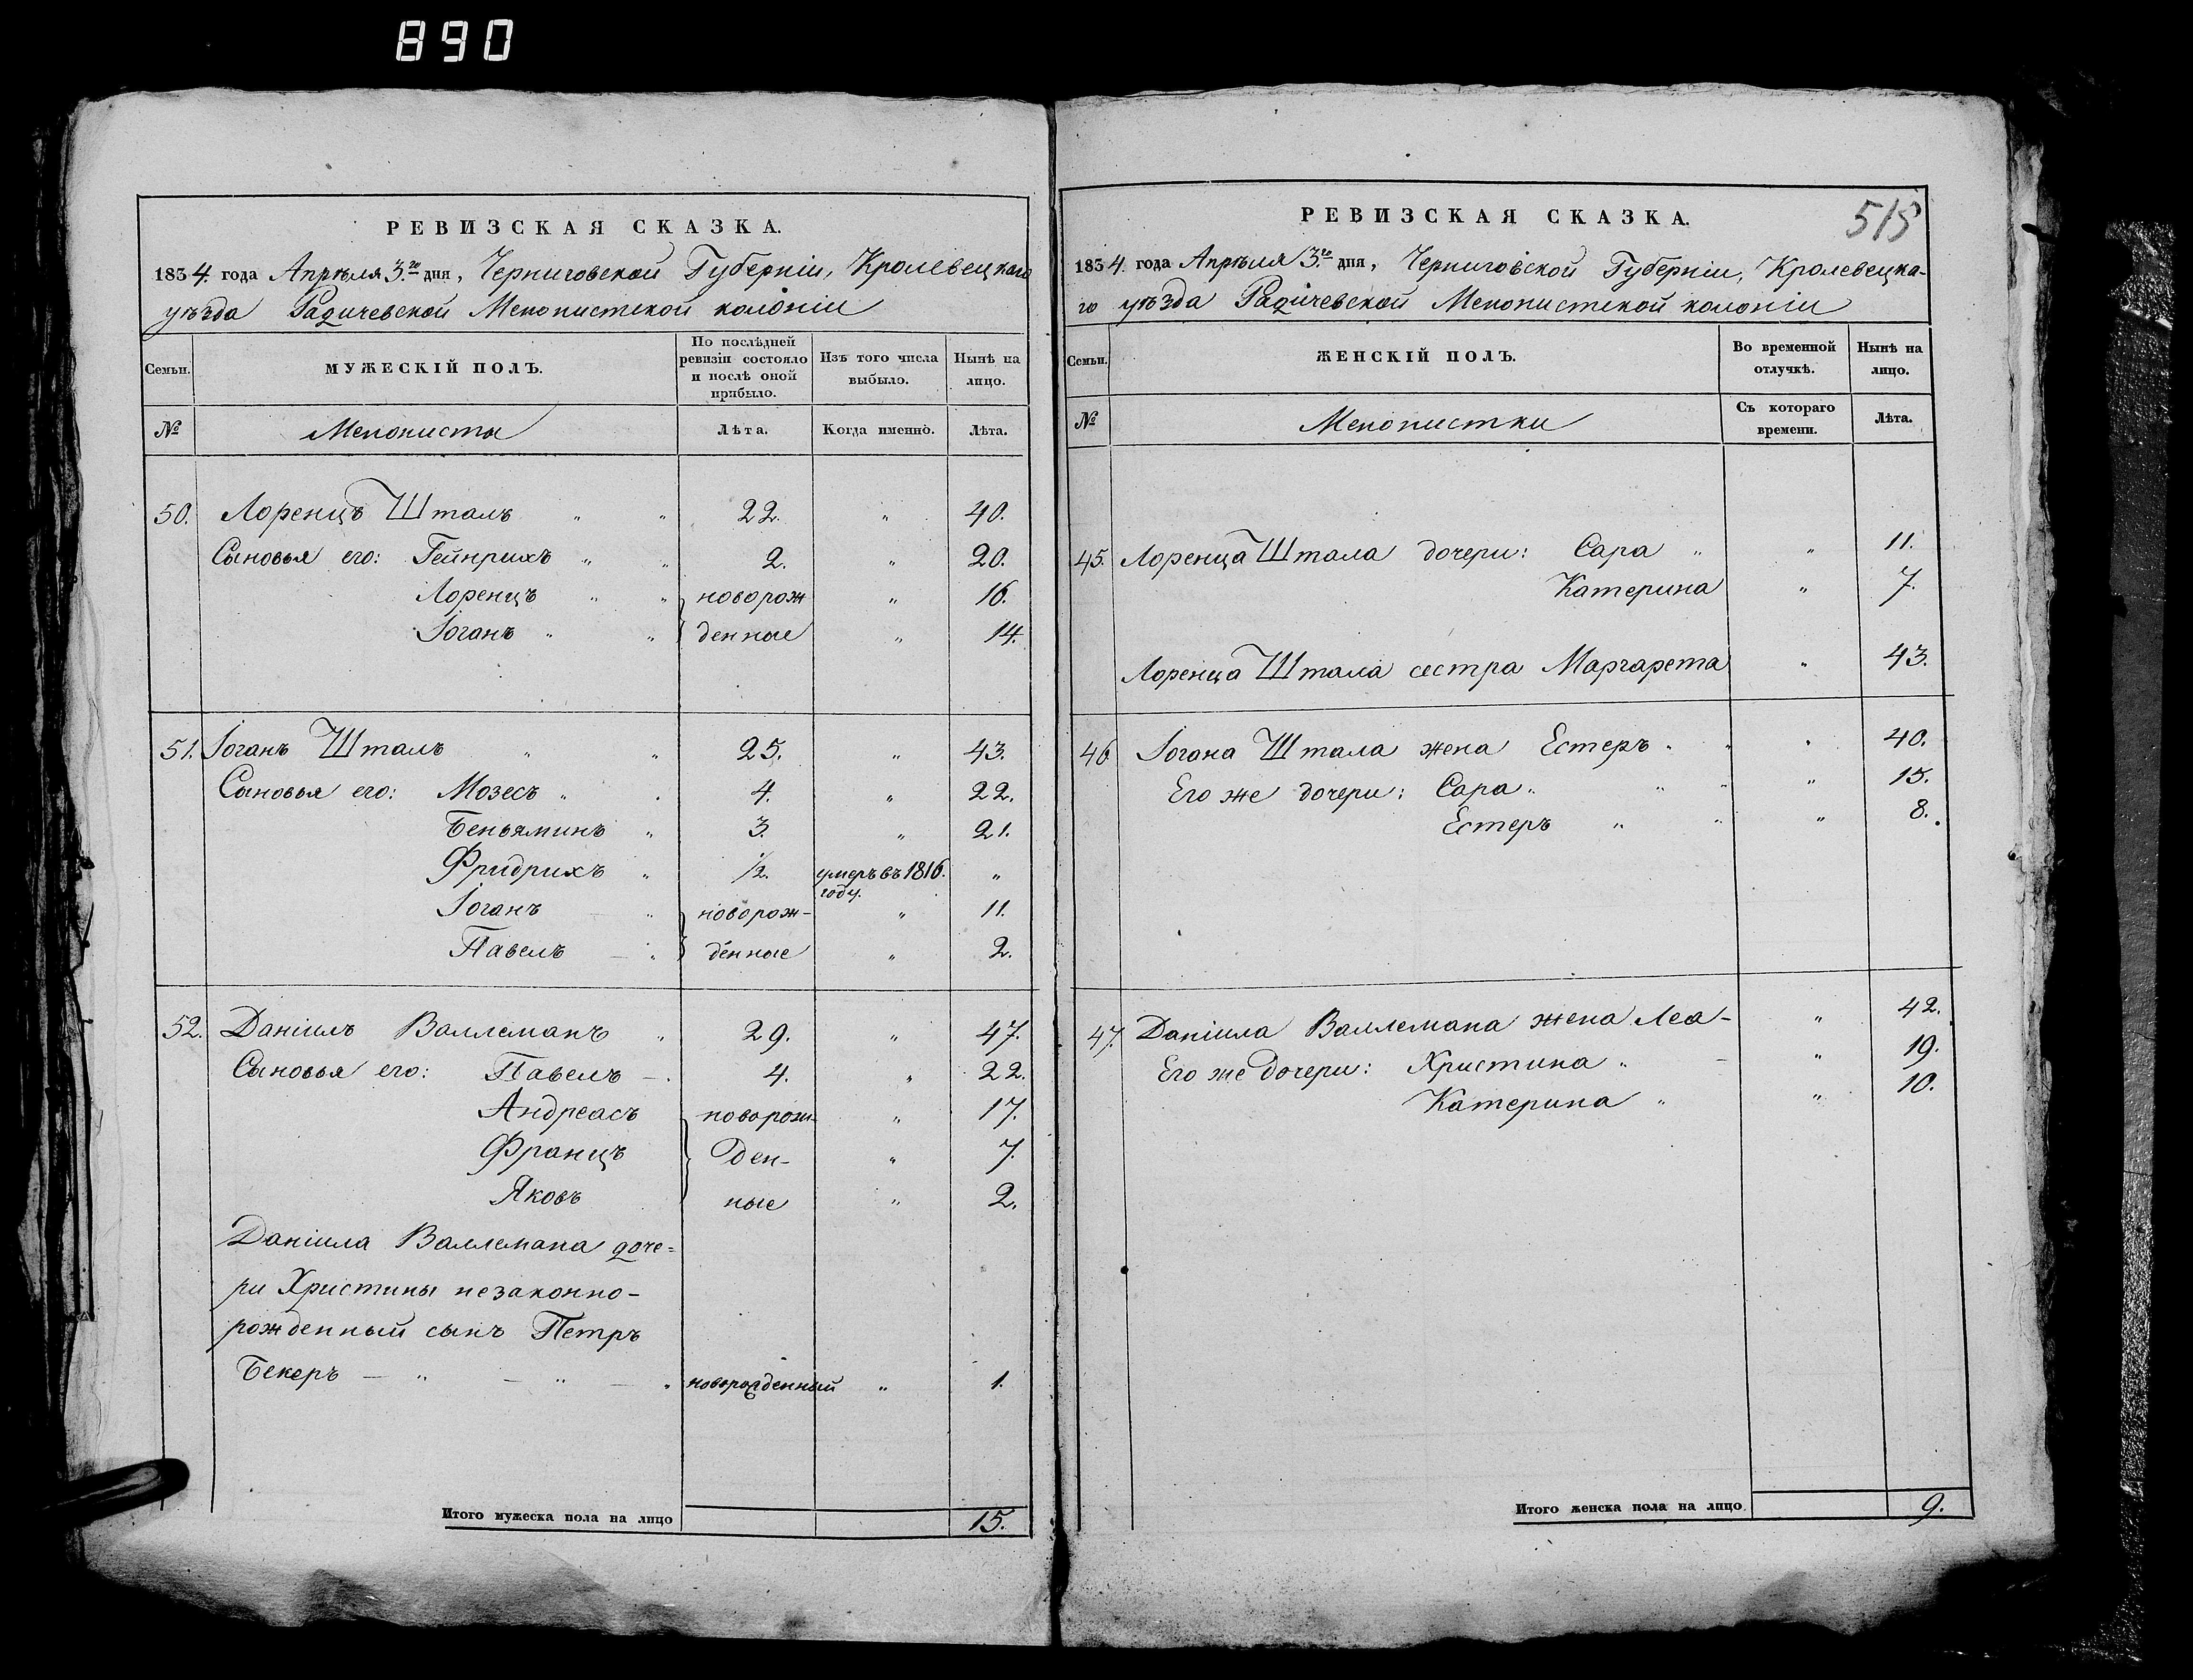 890
РЕВИЗСКАЯ СКАЗКА.
1834. года Апрѣля 3.го дня, Черниговской Губерніи, Кролевецкаго
уѣзда Радичевской Менонистской колоніи
Семьи. МУЖЕСКІЙ ПОЛЪ. По послѣдней ревизіи состояло и послѣ оной прибыло. Изъ того числа выбыло. Нынѣ на лицо.
№ Менонисты Лѣта. Когда именно. Лѣта.
50. Лоренцъ Шталъ " " 22. " 40.
Сыновья его: Гейнрихъ " " 2. " 20.
Лоренцъ " " новорож " 16.
Іоганъ " " денные " 14.
51. Іоганъ Шталъ " " 25. " 43.
Сыновья его: Мозесъ " " 4. " 22.
Беньяминъ " 3. " 21.
Фридрихъ " ½. умеръ въ 1816. году. "
Іоганъ " новорож- " 11.
Павелъ — " денные " 2.
52. Даніилъ Валлеманъ " 29. " 47.
Сыновья его: Павелъ — 4. " 22.
Андреасъ новорож- " 17.
Францъ ден- " 7.
Яковъ ные " 2.
Даніила Валлемана доче=
ри Христины незаконно-
рожденный сынъ Петръ
Бекеръ — " — " — " новорожденный " 1.
Итого мужеска пола на лицо 15.
РЕВИЗСКАЯ СКАЗКА.
515
1834. года Апрѣля 3.го дня, Черниговской Губерніи, Кролевецка-
го уѣзда Радичевской Менонистской колоніи
Семьи. ЖЕНСКІЙ ПОЛЪ. Во временной отлучкѣ. Нынѣ на лицо.
№ Менонистки Съ котораго времени. Лѣта.
45. Лоренца Штала дочери: Сара " " 11.
Катерина " 7.
Лоренца Штала сестра Маргарета " 43.
46. Іогана Штала жена Естеръ " " " 40.
Его же дочери: Сара " " " " 15.
Естеръ " " " 8.
47. Даніила Валлемана жена Леа - " 42.
Его же дочери: Христина " — " 19.
Катерина " " 10.
Итого женска пола на лицо 9.